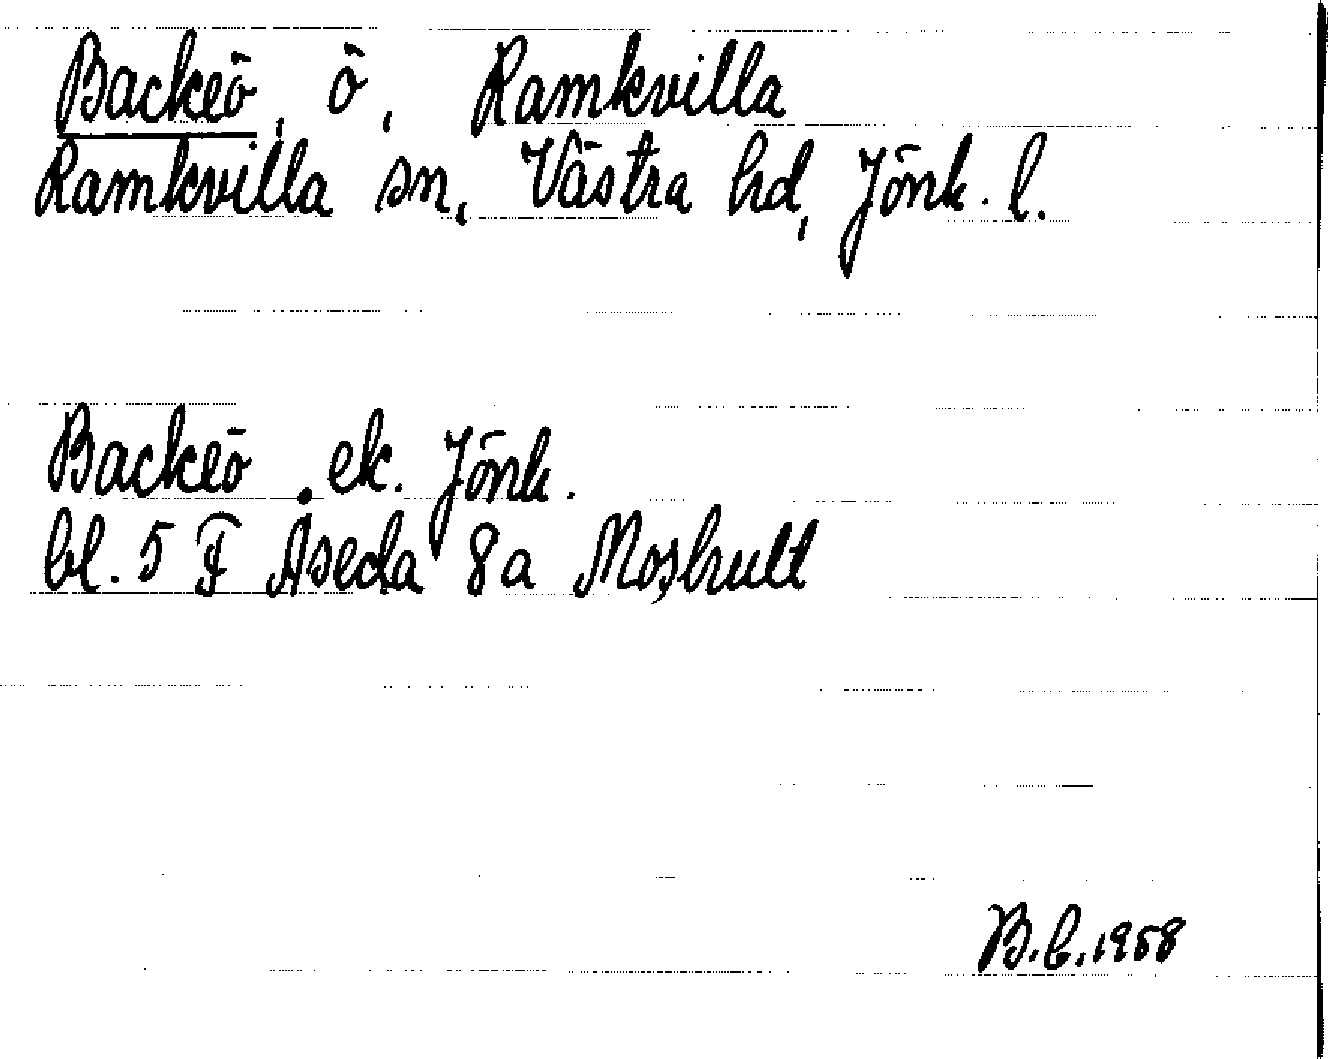 Backeö, ö, Ramkvilla
Ramkvilla sn, Västra hd, Jönk. l.
Backeö . ek. Jönk.
bl. 5 F Åseda 8a Moshult
B.C. 1958